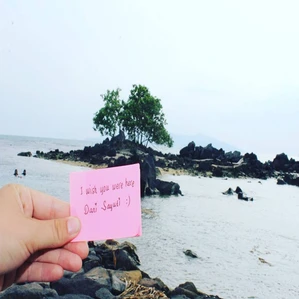 I wish you were here
Dari Sayuri :)